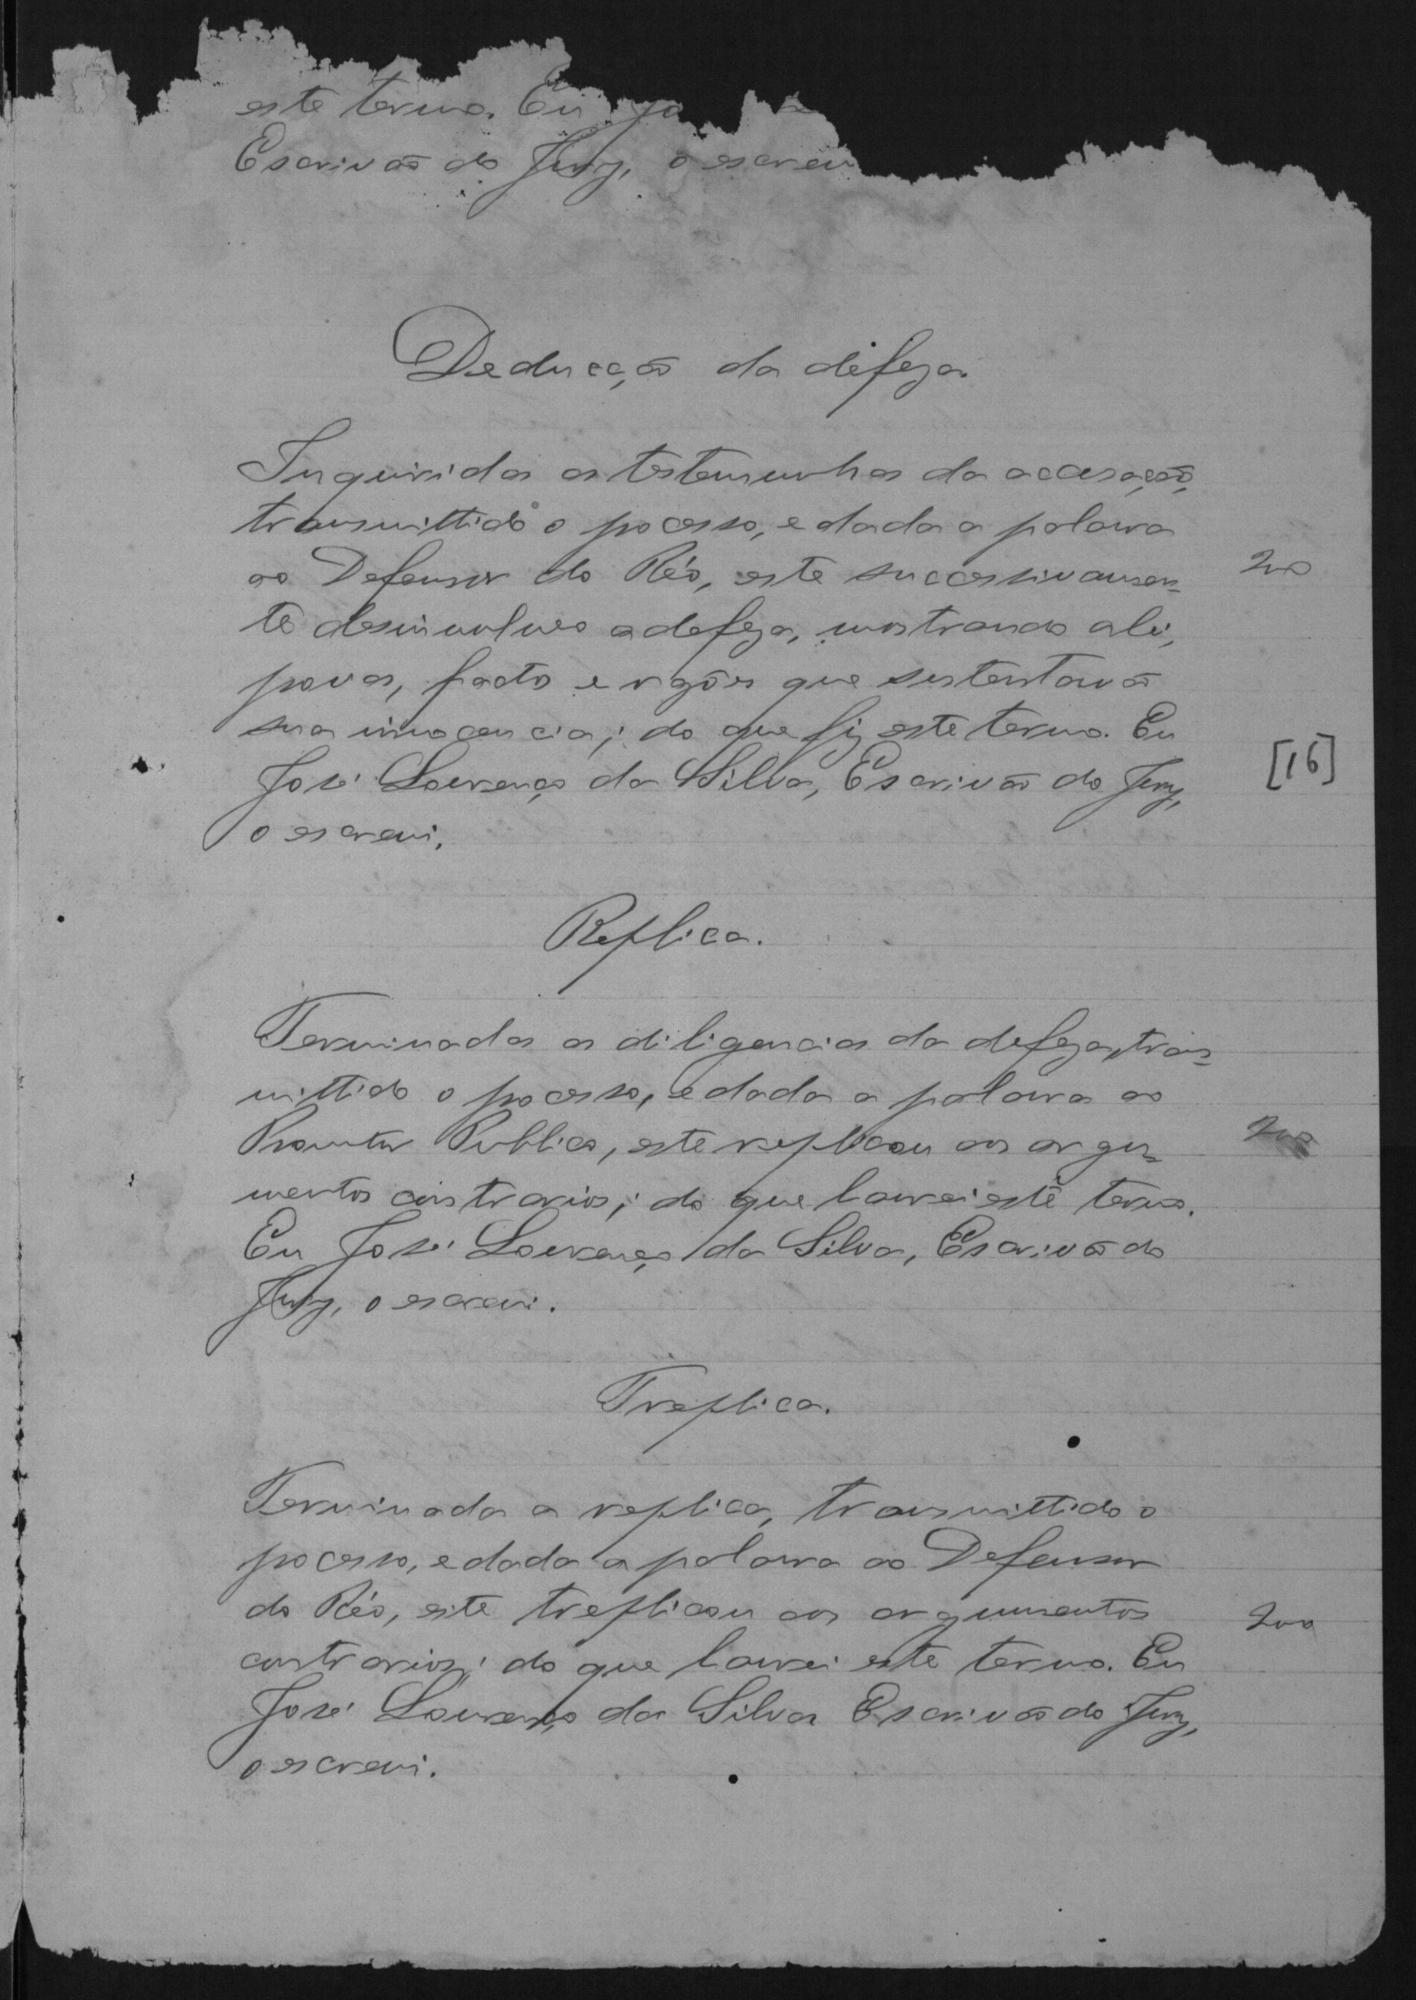 este termo. Eu Jo
Escrivão do Jury, o escrevi
Deducção da defeza.
Inquiridas as testemunhas da accusação,
transmittido o pocesso, e dada a palavra
ao Defensor do Réo, este successivamen-
te desinvolveo a defeza, mostrando a lei,
povas, facto e rasões que sustentavão
sua innocencia; do que fiz este termo. Eu
José Lourenço da Silva, Escrivão do Jury,
o escrevi.
200
[16]
Replica.
Terminadas as diligencias da defeza, trans-
mittido o pocesso, e dada a palavra ao
Promotor Publico, este replicou aos argu-
mentos contrarios; do que lavrei este termo.
Eu José Lourenço da Silva, Escrivão do
Jury, o escrevi.
200
Treplica.
Terminada a replica, transmittido o
pocesso, e dada a palavra ao Defensor
do Réo, este treplicou aos argumentos
contrarios; do que lavrei este termo. Eu
José Lourenço da Silva Escrivão do Jury,
o escrevi.
200